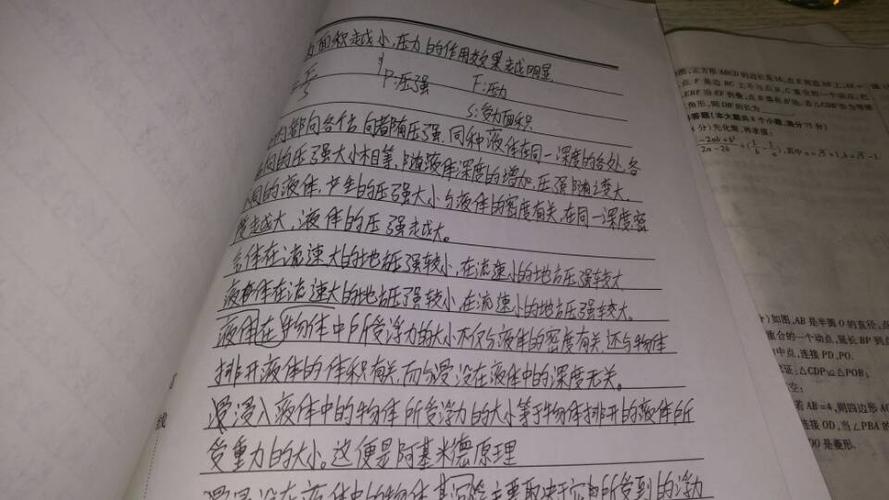 力面积越小,压力的作用效果越明显
P:压强 F:压力
S:受力面积
内部向各个方向都有压强,同种液体在同一深度的各处,各
方向的压强大小相等,随液体深度的增加,压强随之变大.
不同的液体,产生的压强大小与液体的密度有关,在同一深度,密
度越大,液体的压强越大。
气体在流速大的地方压强较小,在流速小的地方压强较大
液体在流速大的地方压强较小,在流速小的地方压强较大。
物体中所受浮力的大小不仅与液体的密度有关,还与物体
排开液体的体积有关,而与浸没在液体中的深度无关。
浸入液体中的物体所受浮力的大小等于物体排开的液体所
受重力的大小。这便是阿基米德原理
没在液体中的物体其沉浮主要取决于它所受到的浮力
线
答题(本大题共8个小题,满分75分)
分)先化简,再求值:
)如图,AB是半圆O的直径,点
重合的一个动点,延长BP到点
中点,连接PD,PO.
证:△CDP≌△POB;
空:
若AB=4,则四边形AO
连接OD,当∠PBA的
是菱形.